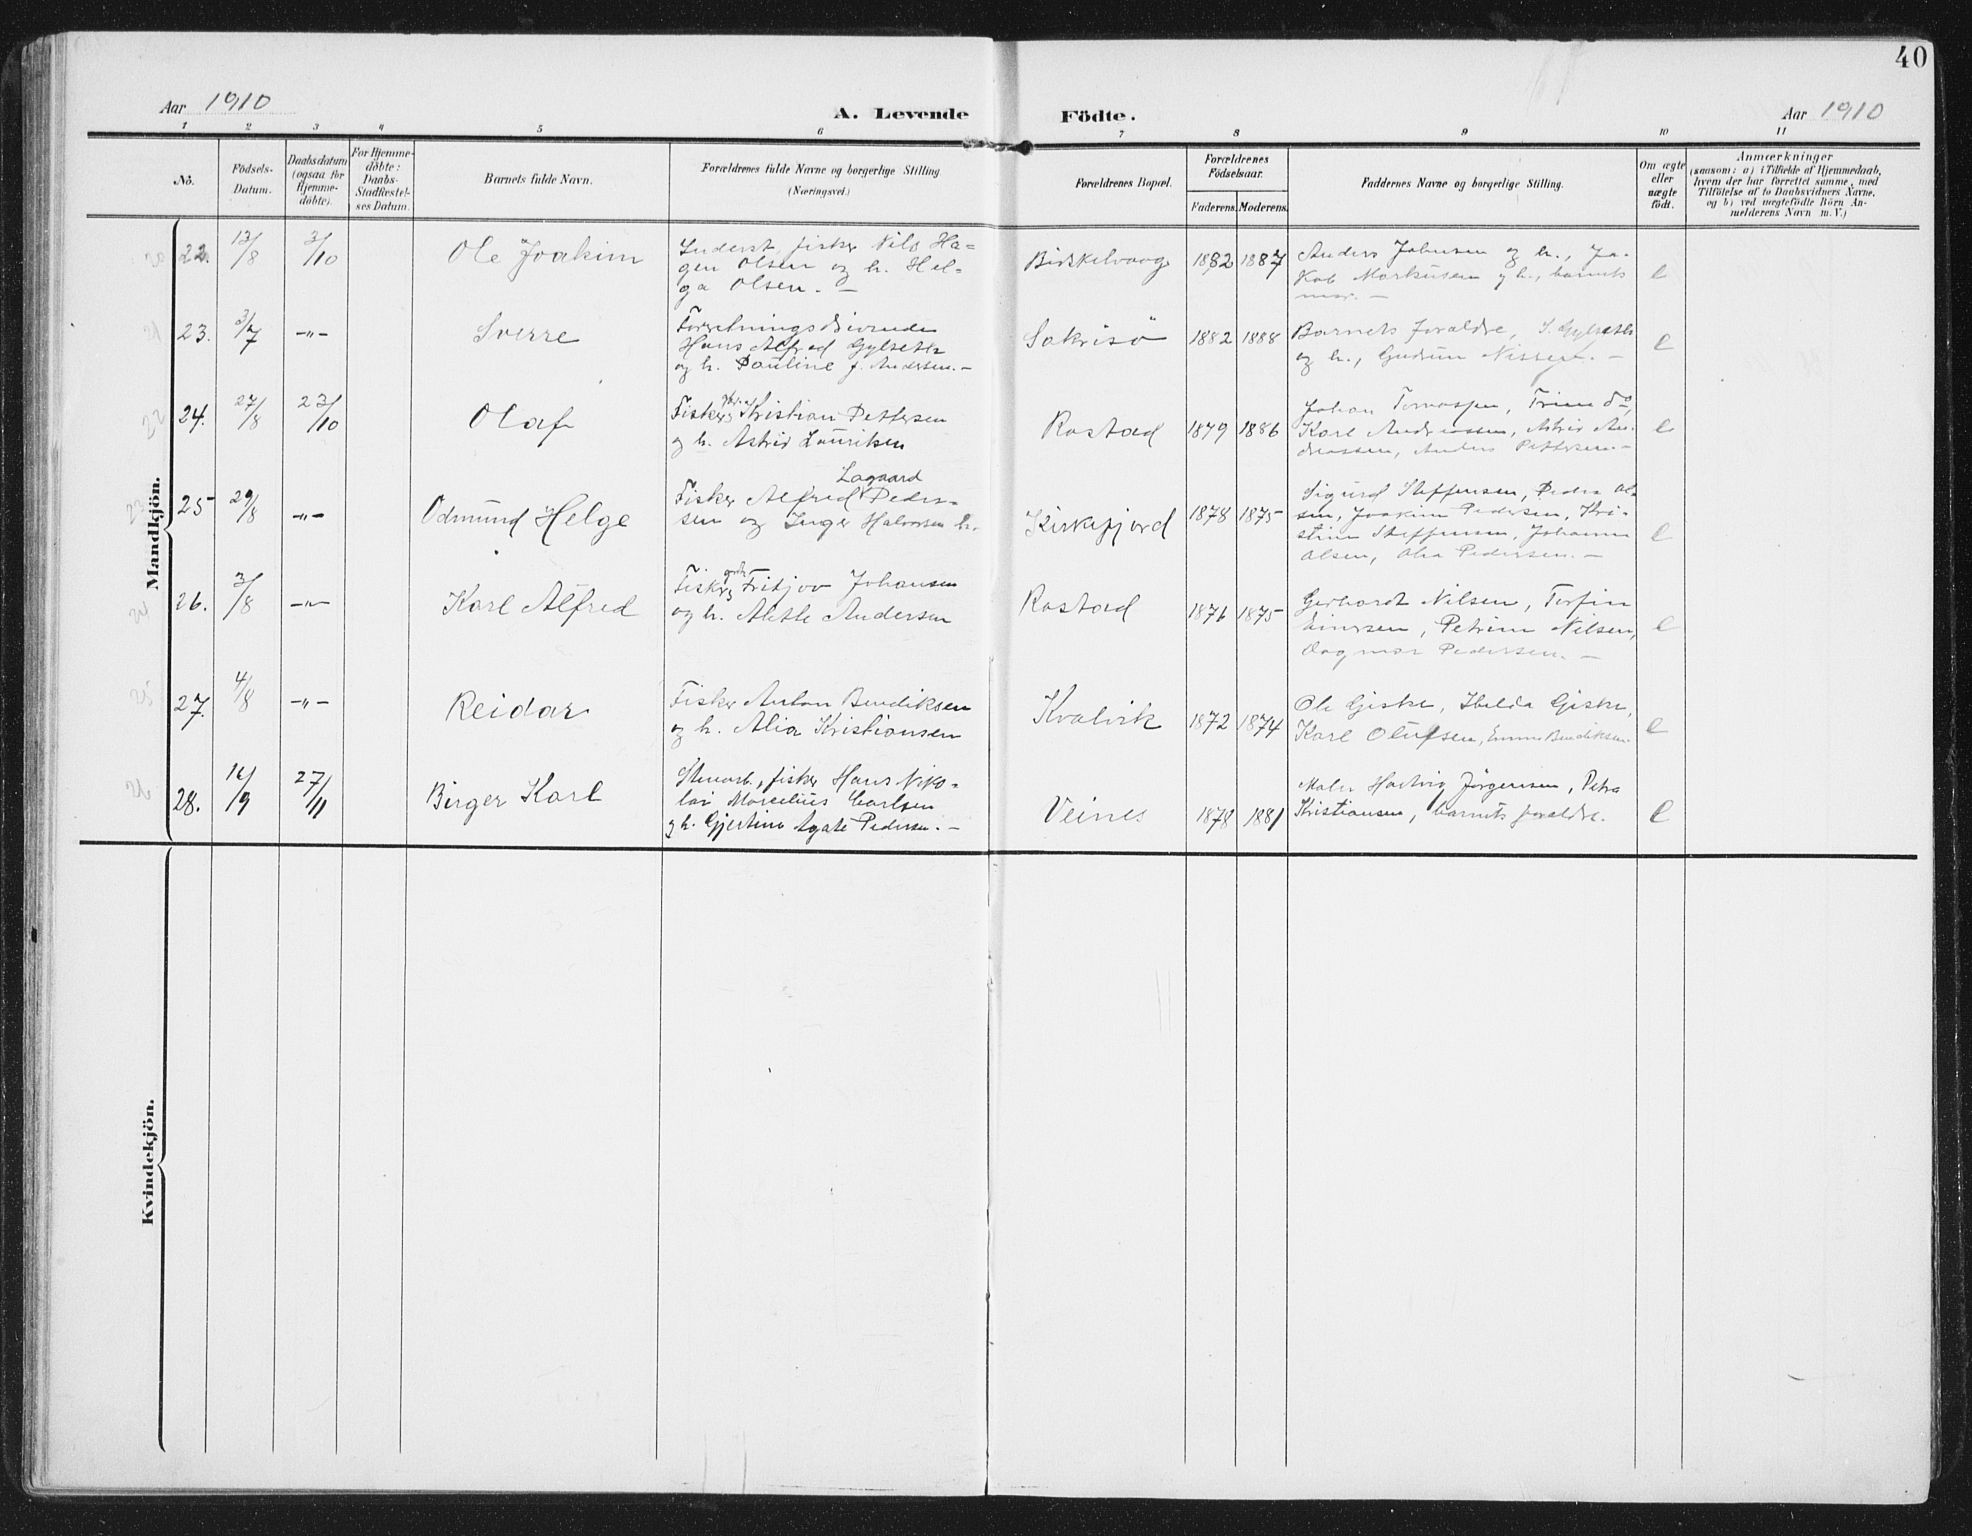 40
Aar 1910
A. Levende Födte.
Aar 1910
1 2 3 4 5 6 7 8 9 10 11
No.
Födsels-
Datum.
Daabsdatum
(ogsaa for
Hjemme-
döbte).
For Hjemme-
döbte:
Daabs-
Stadfestel-
ses Datum.
Barnets fulde Navn.
Forældrenes fulde Navne og borgerlige Stilling
(Næringsvei.)
Forældrenes Bopæl.
Forældrenes
Födselsaar.
Faderens. Moderens.
Faddernes Navne og borgerlige Stilling.
Om ægte
eller
uægte
födt.
Anmærkninger
(saasom: a) i Tilfælde af Hjemmedaab,
hvem der har forrettet samme, med
Tilföielse af to Daabsvidners Navne,
og b) ved uægtefödte Börn An-
melderens Navn m. V.)
Mandkjön.
22. 13/8 3/10 Ole Joakim
Inderst, fisker Nils Ha-
gen Olsen og h. Hel-
ga Olsen. —
1882 1887
Anders Johnsen og h., Ja-
kob Markusen og h., barnets
mor. —
e
23. 3/7 —"— Sverre
Forretningsdrivende
Hans Alfred Gylseth
og h. Pauline f. Andersen. —
Sakrisö 1882 1888
Barnets foraldre, S. Gylseth
og h., Gudrun Nissen. —
e
24. 27/8 23/10 Olaf
Fisker Kristian Pettersen
og h. Astrid Lauriksen
Rostad 1879 1886
Johan Tomassen, Trine do,
Karl Andreassen, Astrid An-
dreassen, Anders Pettersen. —
e
25 29/8 —"— Odmund Helge
Lagaard
Fisker Alfred Peder-
sen og Inger Halvorsen h.
Kirkefjord 1878 1875
Sigurd Steffensen, Peder Ol-
sen, Joakim Pedersen, Kri-
stine Steffensen, Johanna
Olsen, Pedersen. —
e
26. 3/8 —"— Karl Alfred
Fisker Fritjov Johansen
og h. Alette Andersen
Rostad 1876 1875
Gerhardt Nilsen, Torfin
Einersen, Petrine Nilsen,
Dagmar Pedersen. —
e
27. 4/8 —"— Reidar
Fisker Anton Bendiksen
og h. Alia Kristiansen
Kvalvik 1872 1874
Ole Giske, Hilda Giske,
Karl Olufsen, Emma Bendiksen.
e
28. 16/9 27/11 Birger Karl
fisker Hans Niko-
lai Marcelius Carlsen
og h. Gjertine Agate Pedersen. —
Veines 1878 1881
Maler Hartvig Jörgensen, Petra
Kristiansen, barnets foraldre.
e
Kvindekjön.